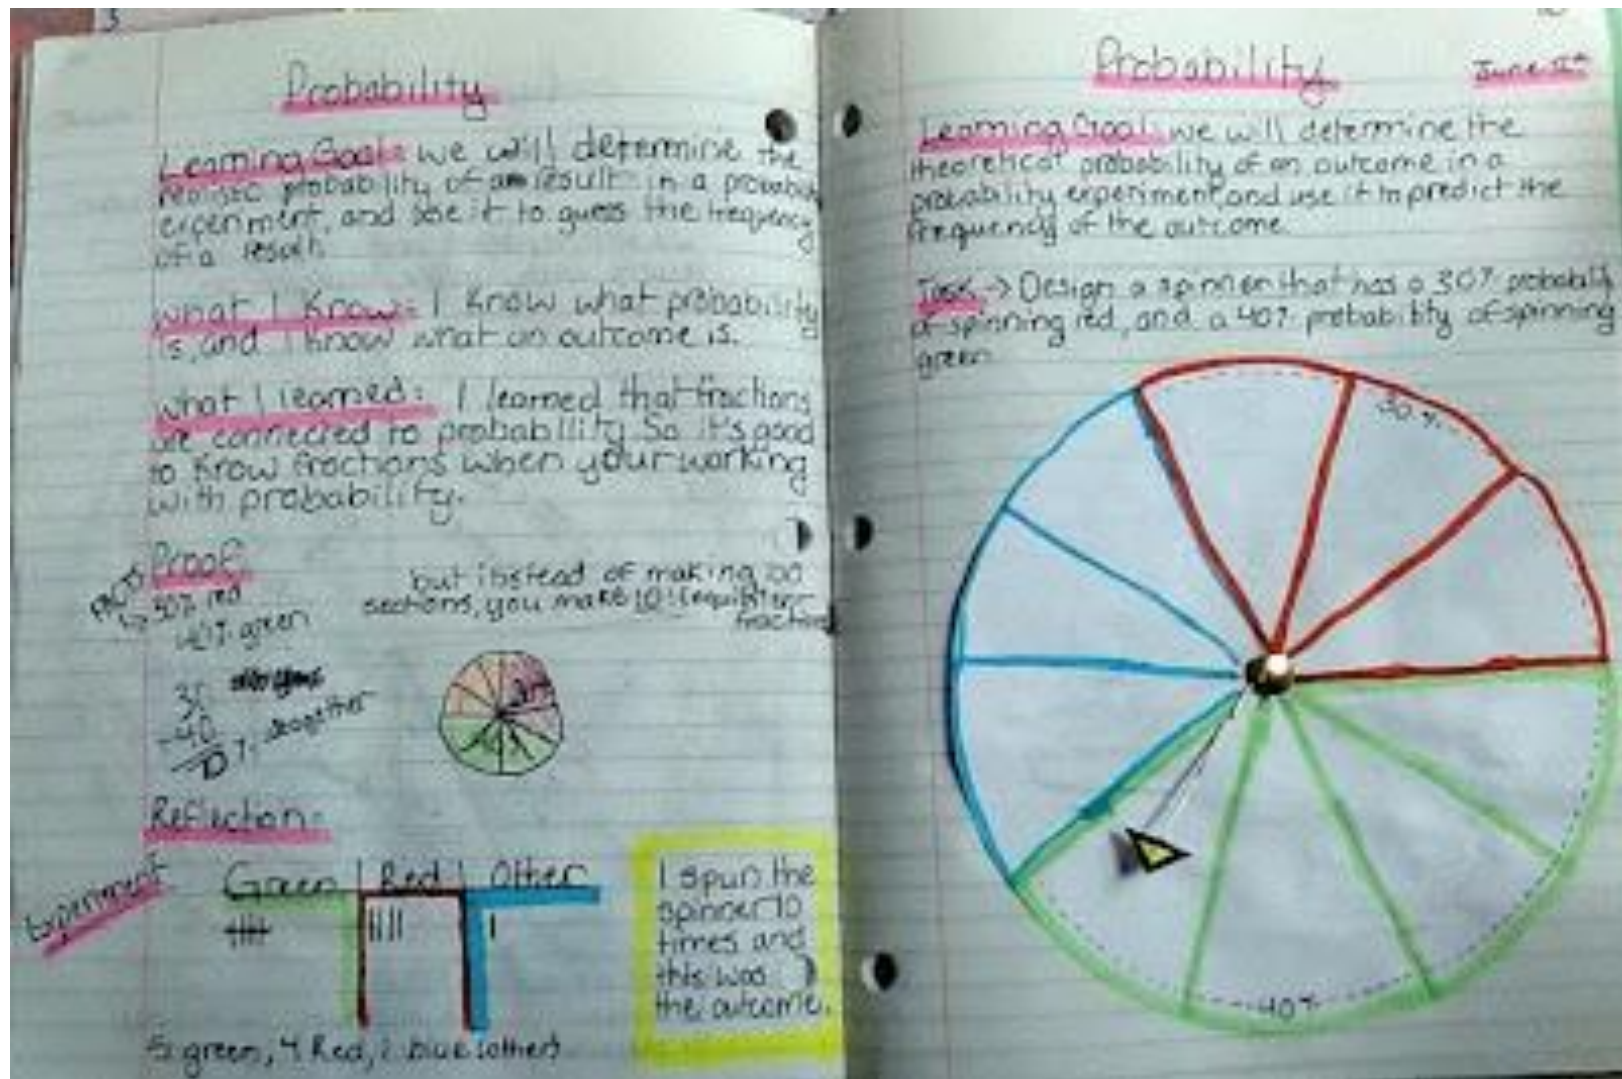 Probability
Learning Goal: we will determine the
realistic probability of a result in a probability
experiment, and use it to guess the frequency
of a result.
What I Know: I know what probability
is, and I know what an outcome is.
What I learned: I learned that fractions
are connected to probability. So it's good
to know fractions when your working
with probability.
Proof:
30% red
40% green
but instead of making 100
sections, you make 10! (equivalent
fraction)
altogether
Reflection:
Experiment
Green Red Other
5 green, 4 Red, 1 blue (other)
I spun the
spinner 10
times and
this was
the outcome.
Probability
June
Learning Goal: we will determine the
theoretical probability of an outcome in a
probability experiment, and use it to predict the
frequency of the outcome.
Task -> Design a spinner that has a 30% probability
of spinning red, and a 40% probability of spinning
green.
30%
40%